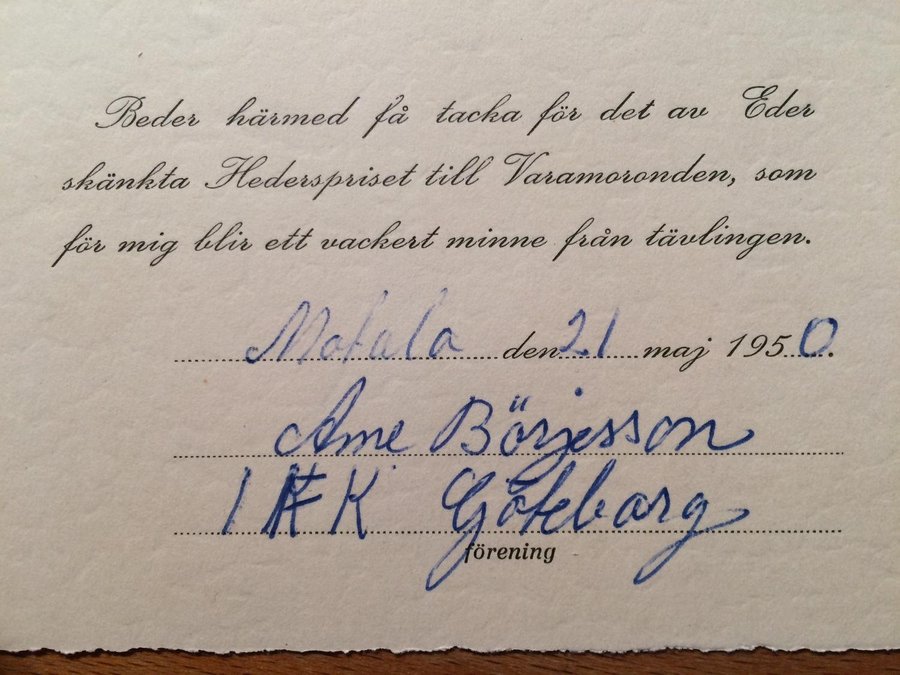 Beder härmed få tacka för det av Eder
skänkta Hederspriset till Varamoronden, som
för mig blir ett vackert minne från tävlingen.
Motala den 21 maj 1950.
Arne Börjesson
IFK Göteborg
förening